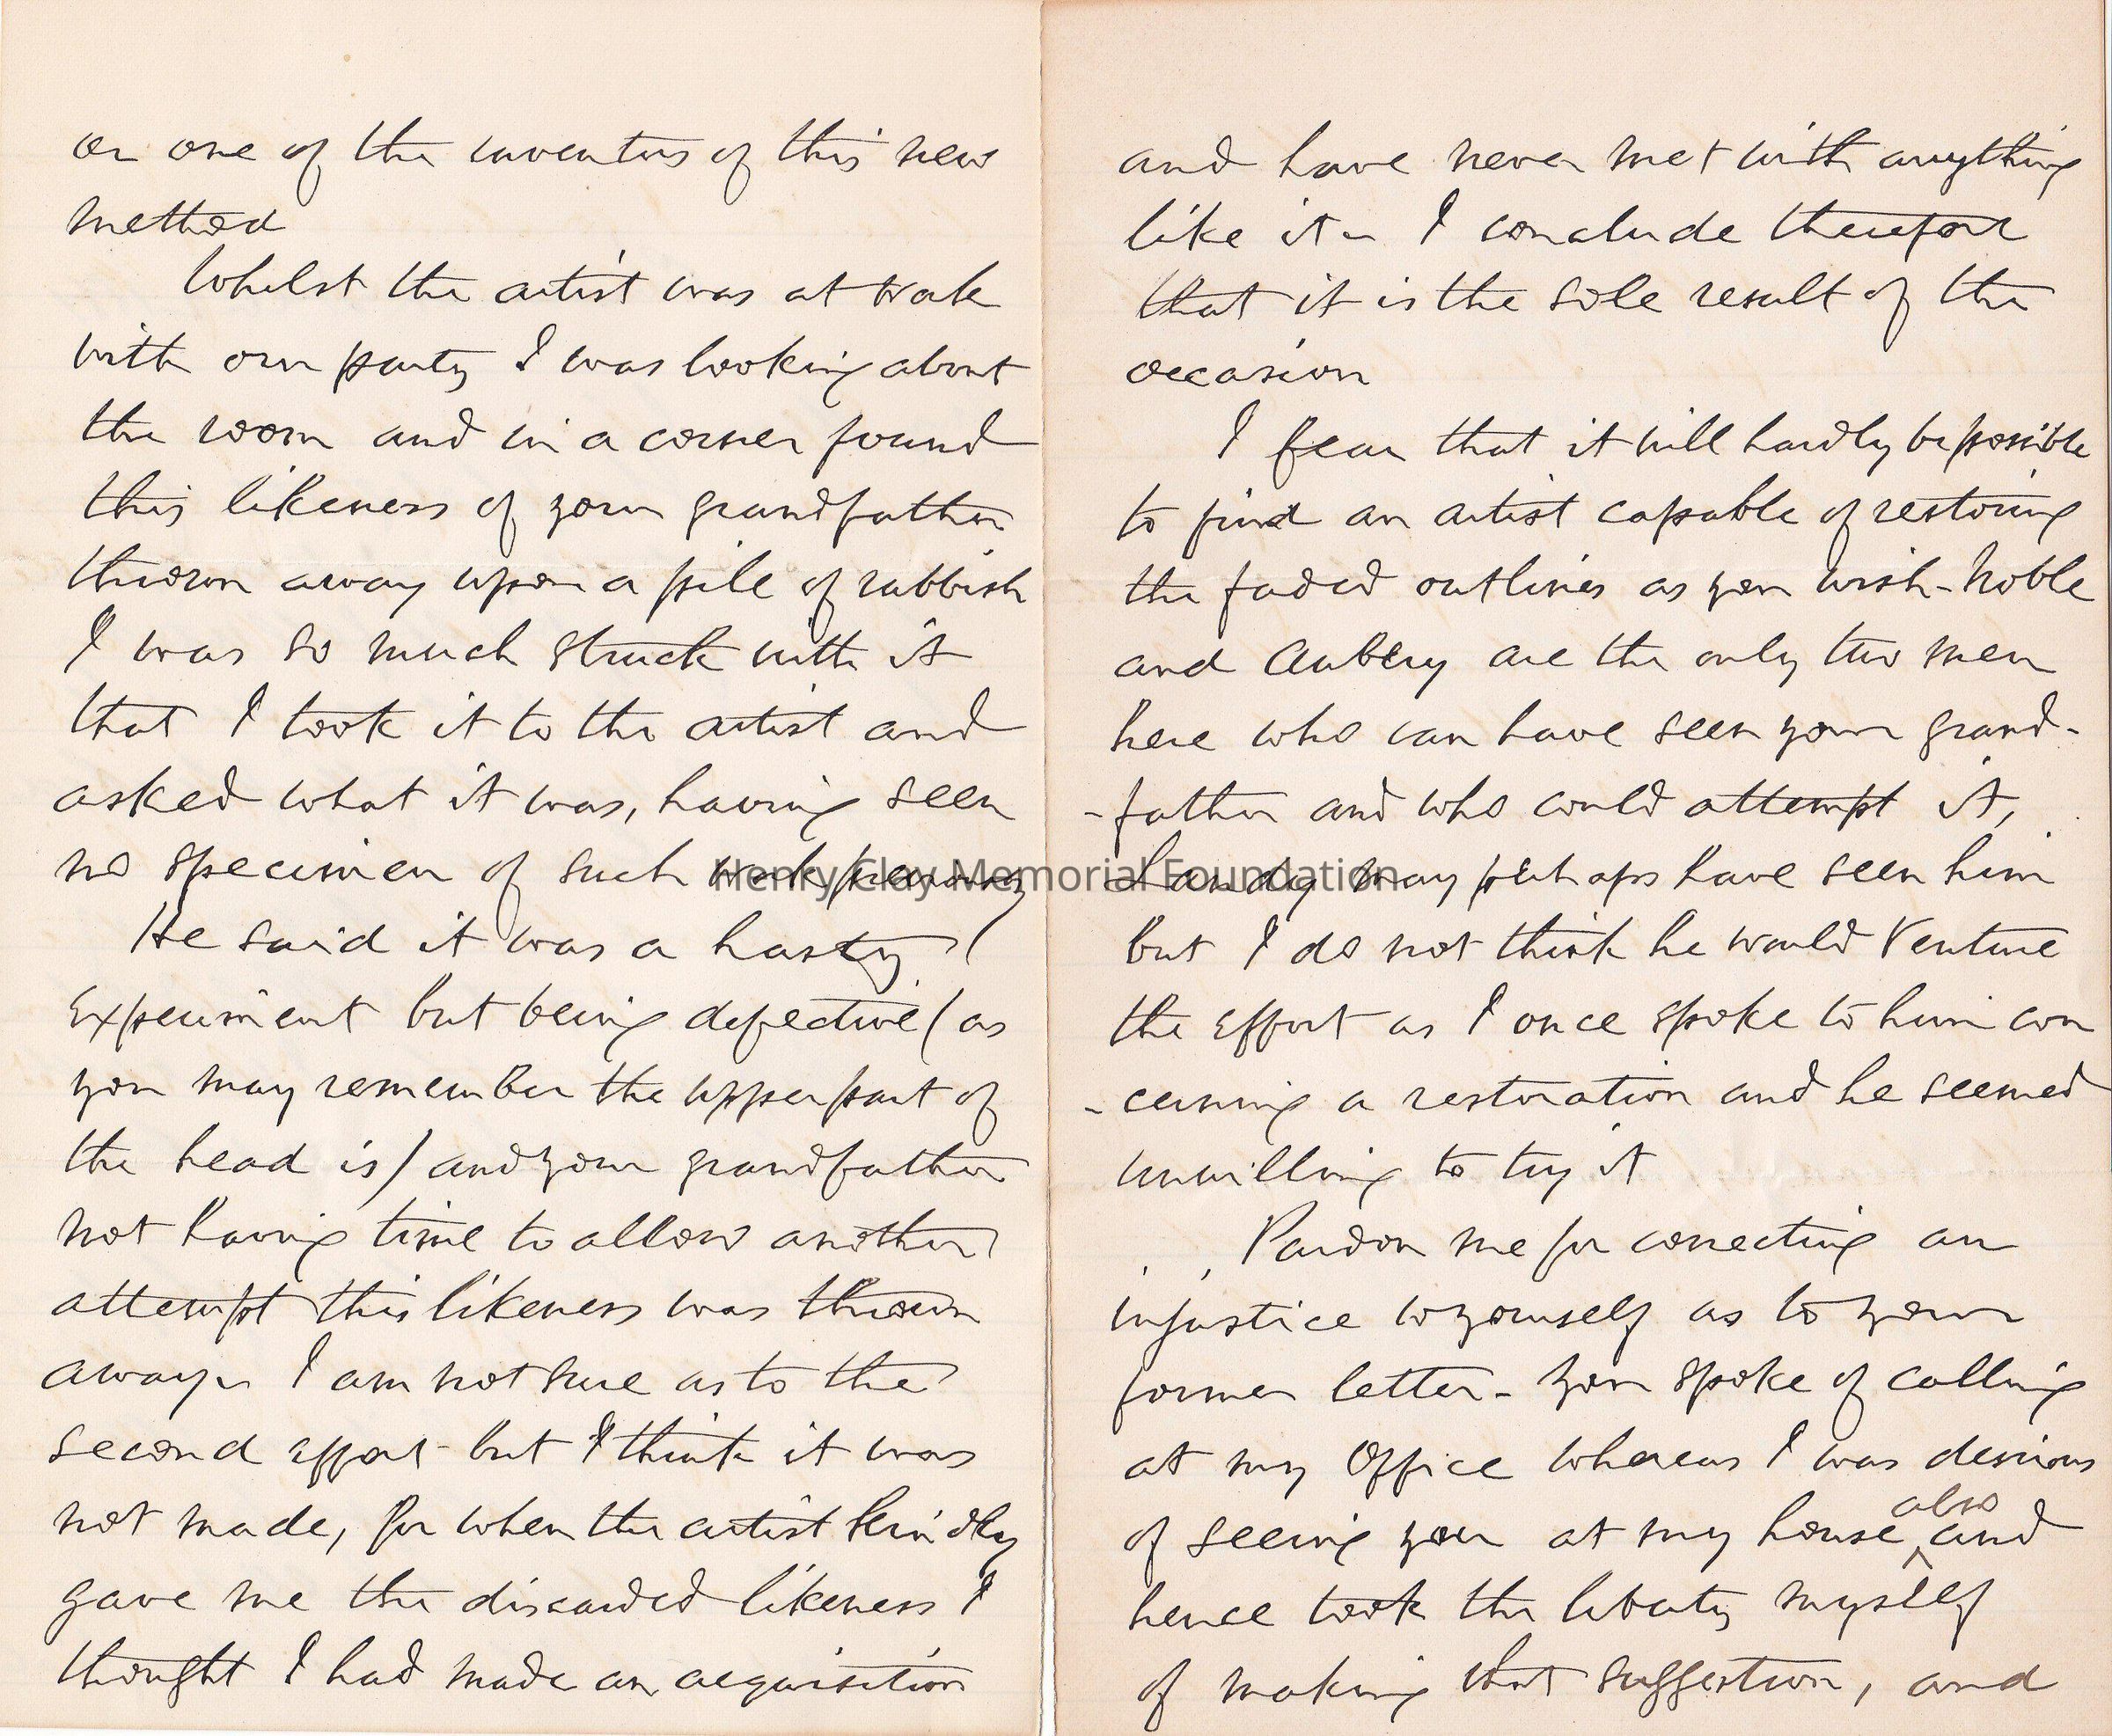 or one of the inventors of this new
method
Whilst the artist was at work
with our party I was looking about
the room and in a corner found
this likeness of your grandfather
thrown away upon a pile of rubbish
I was so much struck with it
that I took it to the artist and
asked what it was, having seen
no specimen of such work previously
He said it was a hasty
experiment but being defective (as
you may remember the upper part of
the head is) and your grandfather
not having time to allow another
attempt this likeness was thrown
away - I am not sure as to the
second effort - but I think it was
not made, for when the artist kindly
gave me the discarded likeness I
thought I had made an acquisition
and have never met with anything
like it - I conclude therefore
that it is the sole result of the
occasion
I fear that it will hardly be possible
to find an artist capable of restoring
the faded outlines as you wish - Noble
and Aubery are the only two men
here who can have seen your grand-
-father and who could attempt it,
may perhaps have seen him
but I do not think he would venture
the effort as I once spoke to him con
-cerning a restoration and he seemed
unwilling to try it
Pardon me for correcting an
injustice to yourself as to your
former letter - You spoke of calling
at my Office whereas I was desirous
of seeing you at my house also and
hence took the liberty myself
of making that suggestion, and
Henry Clay Memorial Foundation